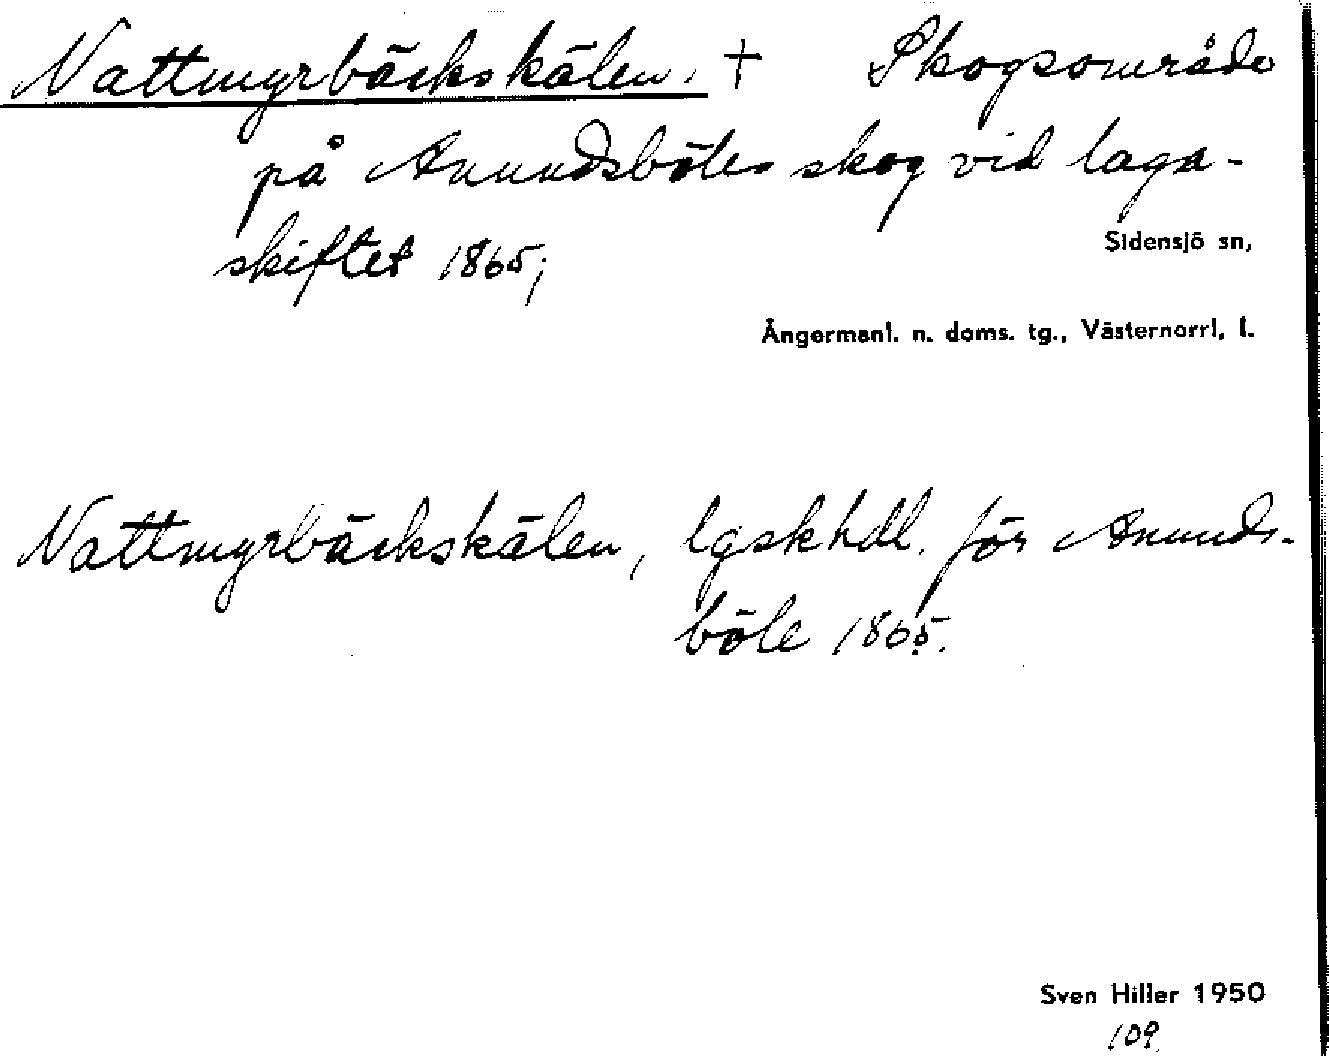 Nattmyrbäckskälen. † Skogsområde
på Anundsböles skog vid laga-
skiftet 1865;
Sidensjö sn,
Ångermanl. n. doms. tg., Västernorrl. l.
Nattmyrbäckskälen, lgskhdl. för Anunds-
böle 1865.
Sven Hiller 1950
109.